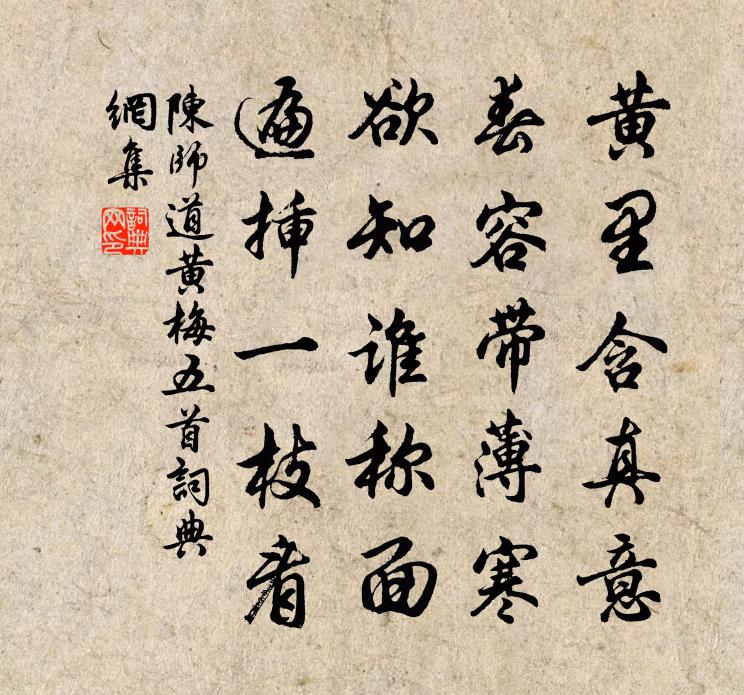 黄里含真意
春容带薄寒
欲知谁称面
遍插一枝看
陳師道黄梅五首詞典
網集
詞典網印